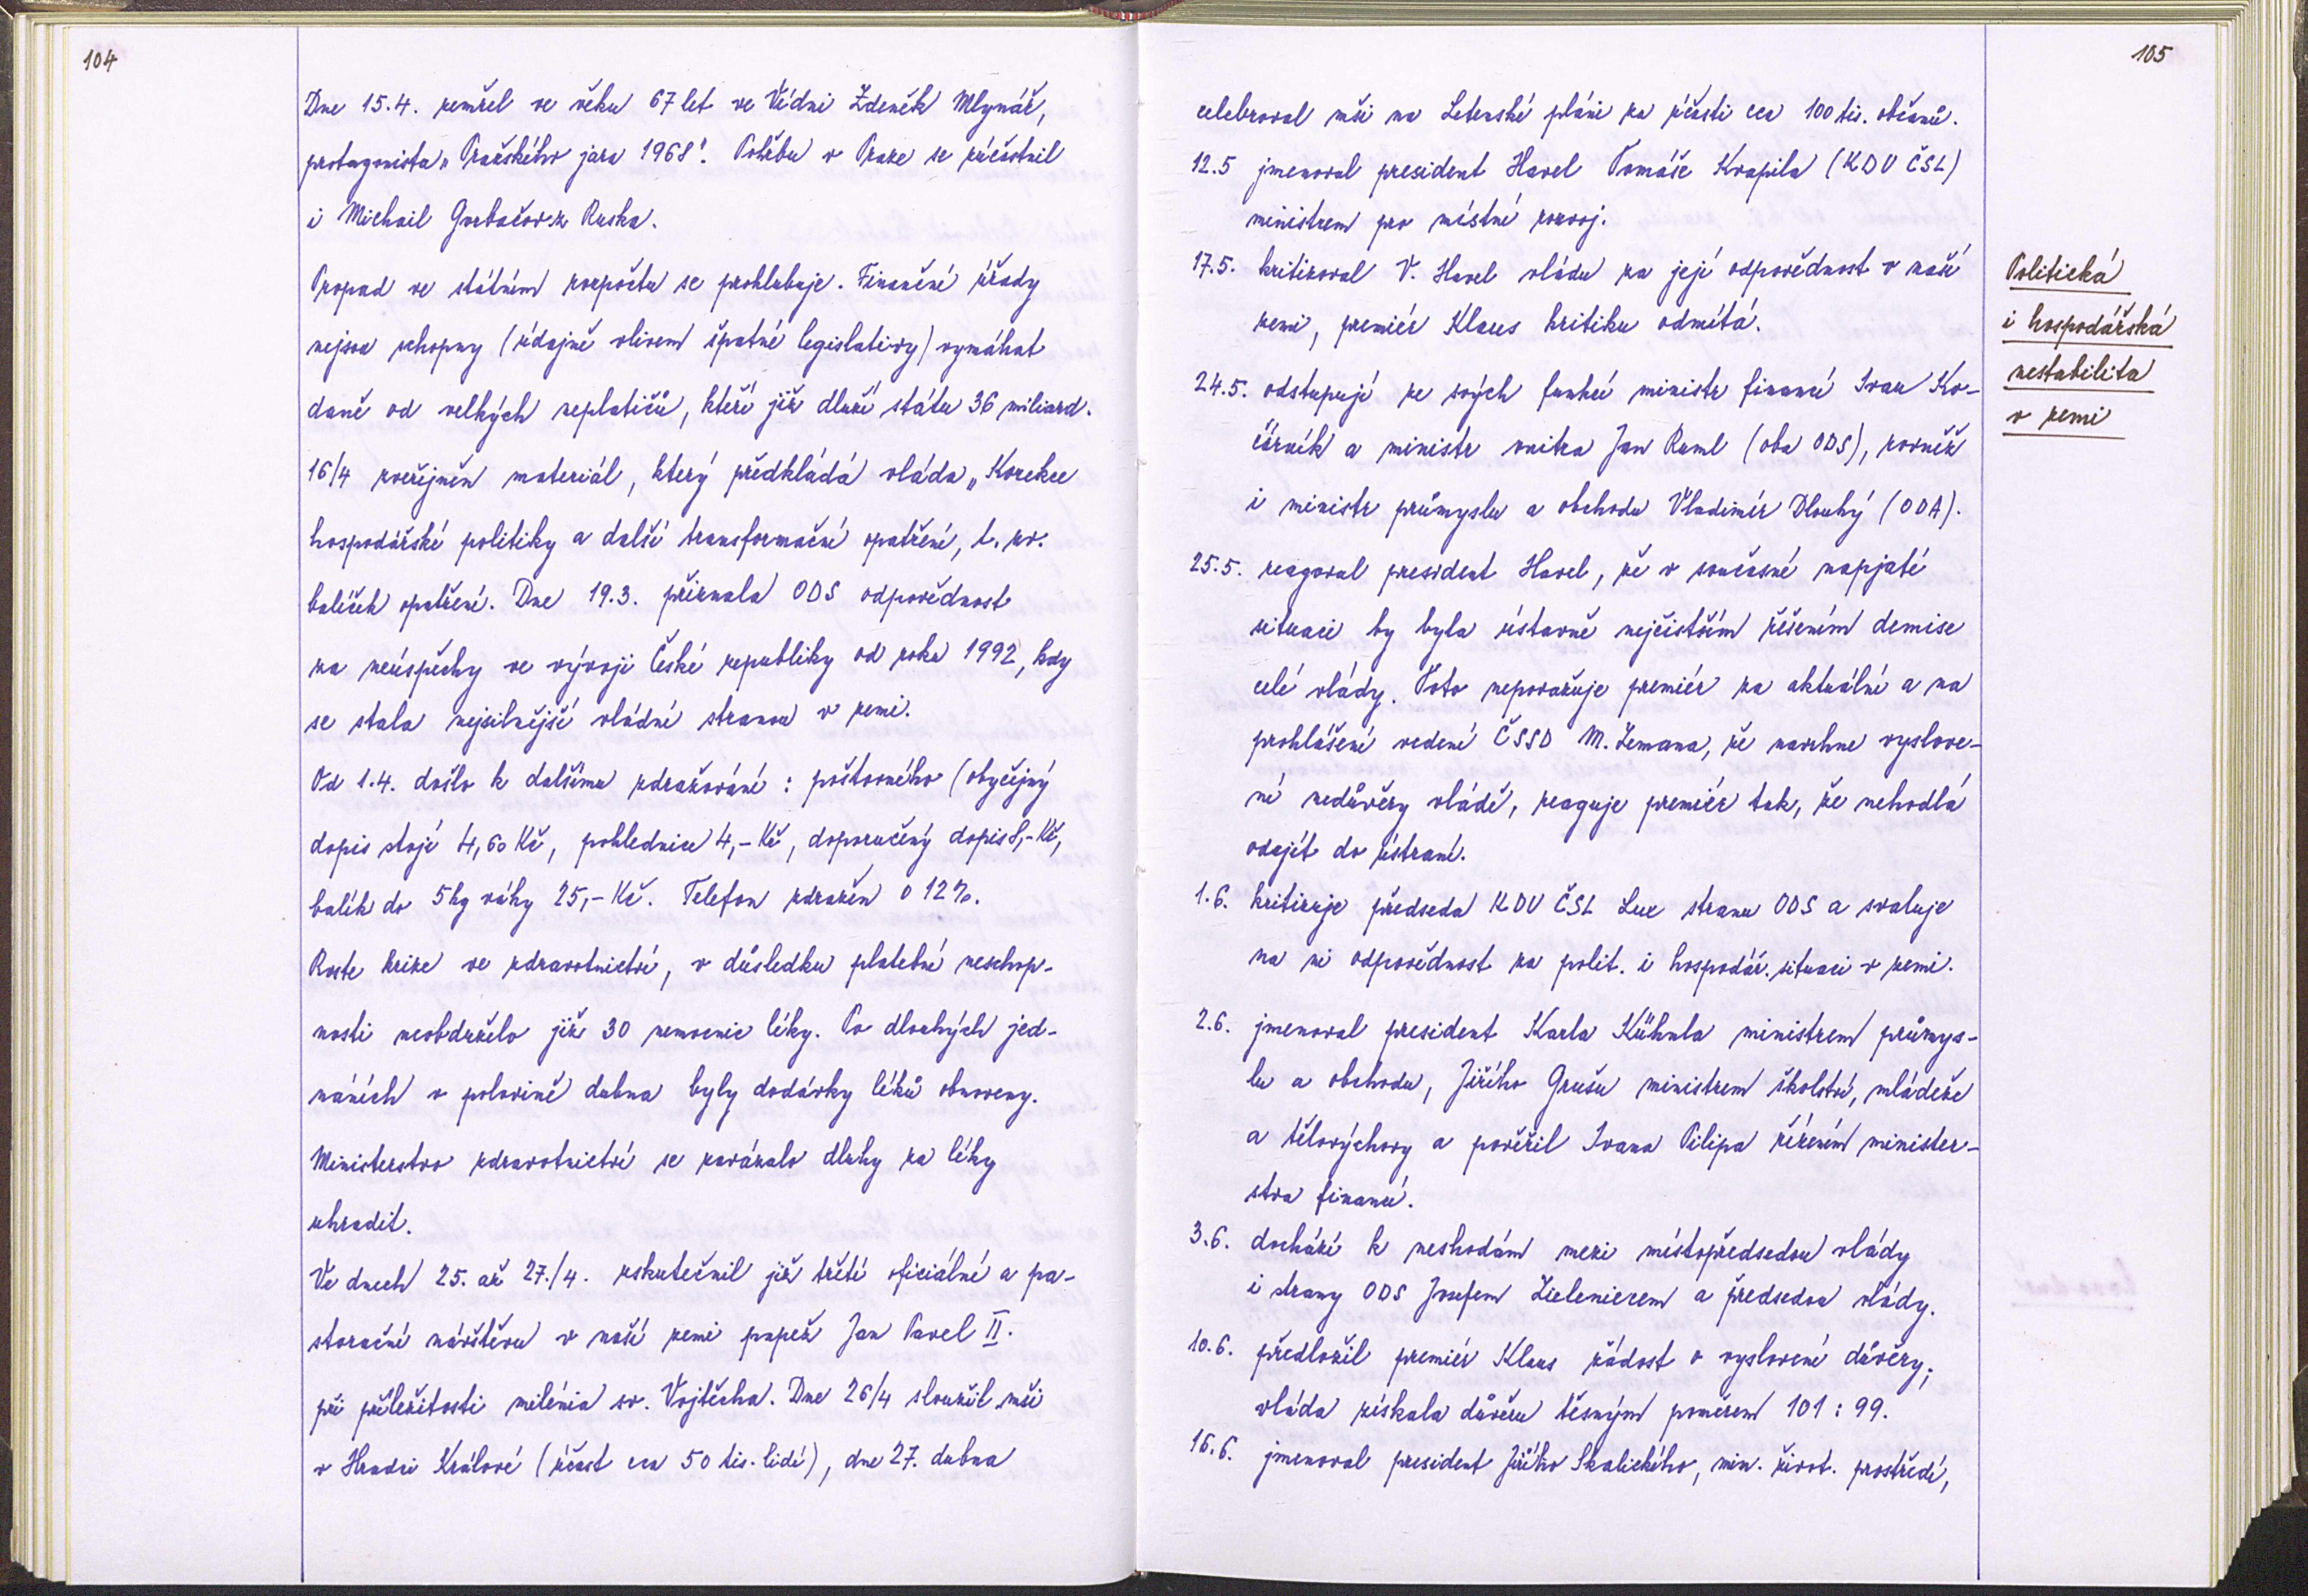 104
Dne 15.4. zemřel ve věku 67 let ve Vídni Zdeněk Mlynář,
protagonista „Pražského jara 1968". Pohřbu v Praze se zúčastnil
i Michail Gorbačov z Ruska.
Propad ve státním rozpočtu se prohlubuje. Finanční úřady
nejsou schopny (údajně vlivem špatné legislativy) vymáhat
daně od velkých neplatičů, kteří již dluží státu 36 miliard.
16/4 zveřejněn materiál, který předkládá vláda „Korekce
hospodářské politiky a další transformační opatření, t. zv.
balíček opatření. Dne 19.3. přiznala ODS odpovědnost
za neúspěchy ve vývoji České republiky od roku 1992, kdy
se stala nejsilnější vládní stranou v zemi.
Od 1.4. došlo k dalšímu zdražování : poštovného (obyčejný
dopis stojí 4,60 Kč, pohlednice 4,- Kč, doporučený dopis 8,- Kč,
balík do 5kg váhy 25,- Kč. Telefon zdražen o 12%.
Roste krize ve zdravotnictví, v důsledku platební neschop-
nosti neobdrželo již 30 nemocnic léky. Po dlouhých jed-
náních v polovině dubna byly dodávky léků obnoveny.
Ministerstvo zdravotnictví se zavázalo dluhy za léky
uhradit.
Ve dnech 25. až 27./4. uskutečnil již třetí oficiální a pa-
storační návštěvu v naší zemi papež Jan Pavel II.
při příležitosti milénia sv. Vojtěcha. Dne 26/4 sloužil mši
v Hradci Králové (účast cca 50 tis. lidí), dne 27. dubna
105
celebroval mši na Letenské pláni za účasti cca 100 tis. občanů.
12.5 jmenoval president Havel Tomáše Kvapila (KDU ČSL)
ministrem pro místní rozvoj.
17.5. kritizoval V. Havel vládu za její odpovědnost v naší
zemi, premiér Klaus kritiku odmítá.
24.5. odstupují ze svých funkcí ministr financí Ivan Ko-
čárník a ministr vnitra Jan Ruml (oba ODS), rovněž
i ministr průmyslu a obchodu Vladimír Dlouhý (ODA).
25.5. reagoval president Havel, že v současné napjaté
situaci by byla ústavně nejčistším řešením demise
celé vlády. Toto nepovažuje premiér za aktuální a na
prohlášení vedení ČSSD M. Zemana, že navrhne vyslove-
ní nedůvěry vládě, reaguje premiér tak, že nehodlá
odejít do ústraní.
1.6. kritizuje předseda KDU ČSL Lux stranu ODS a svaluje
na ni odpovědnost za polit. i hospodář. situaci v zemi.
2.6. jmenoval president Karla Kühnla ministrem průmys-
lu a obchodu, Jiřího Grušu ministrem školství, mládeže
a tělovýchovy a pověřil Ivana Pilipa řízením minister-
stva financí.
3.6. dochází k neshodám mezi místopředsedou vlády
i strany ODS Josefem Zieleniecem a předsedou vlády.
10.6. předložil premiér Klaus žádost o vyslovení důvěry;
vláda získala důvěru těsným poměrem 101 : 99.
16.6. jmenoval president Jiřího Skalického, min. život. prostředí,
Politická
i hospodářská
nestabilita
v zemi